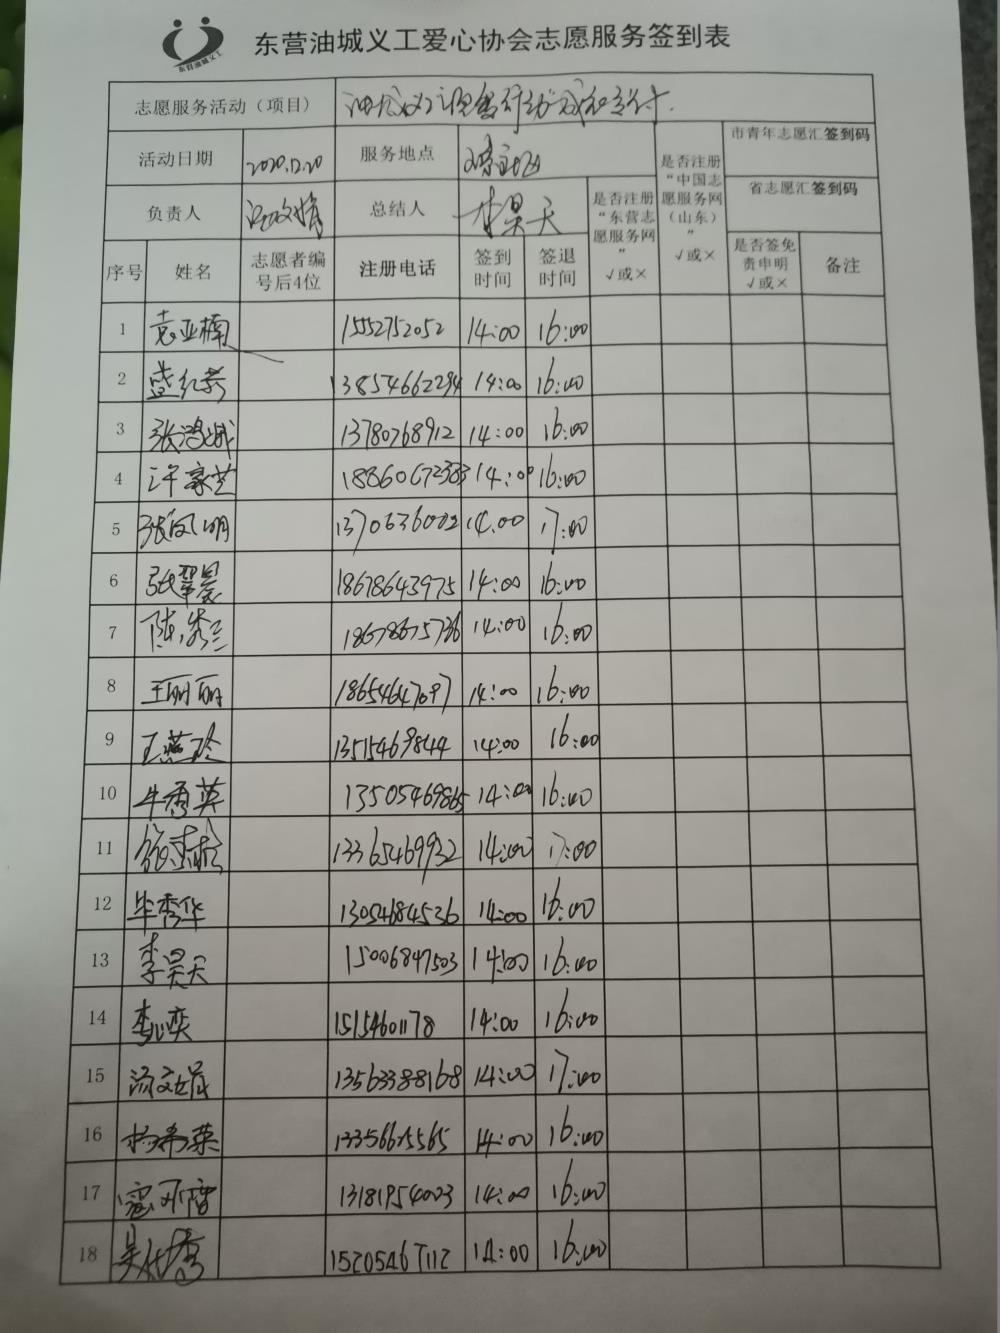 东营油城义工
东营油城义工爱心协会志愿服务签到表
志愿服务活动（项目）
活动日期 2020.12.20 服务地点
是否注册“中国志愿服务网（山东）” √或×
市青年志愿汇签到码
负责人 总结人 李昊天
是否注册“东营志愿服务网” √或×
省志愿汇签到码
序号 姓名 志愿者编号后4位 注册电话 签到时间 签退时间 是否签免责申明 √或× 备注
1 袁亚楠 15552752052 14:00 16:00
2 盛红蕊 13854662294 14:00 16:00
3 张鸿城 13780768912 14:00 16:00
4 许家芝 18860672383 14:00 16:00
5 张凤明 14:00 17:00
6 张翠晨 18678643975 14:00 16:00
7 陈秀兰 18678675736 14:00 16:00
8 王丽丽 18654647097 14:00 16:00
9 王燕玲 13515469844 14:00 16:00
10 牛秀英 13505469865 14:00 16:00
11 13365469932 14:00 17:00
12 毕秀华 13054684536 14:00 16:00
13 李昊天 15006847503 14:00 16:00
14 李心奕 15154601178 14:00 16:00
15 汤文娟 13563388168 14:00 17:00
16 杨希荣 13356615565 14:00 16:00
17 13181954003 14:00 16:00
18 15205467112 14:00 16:00